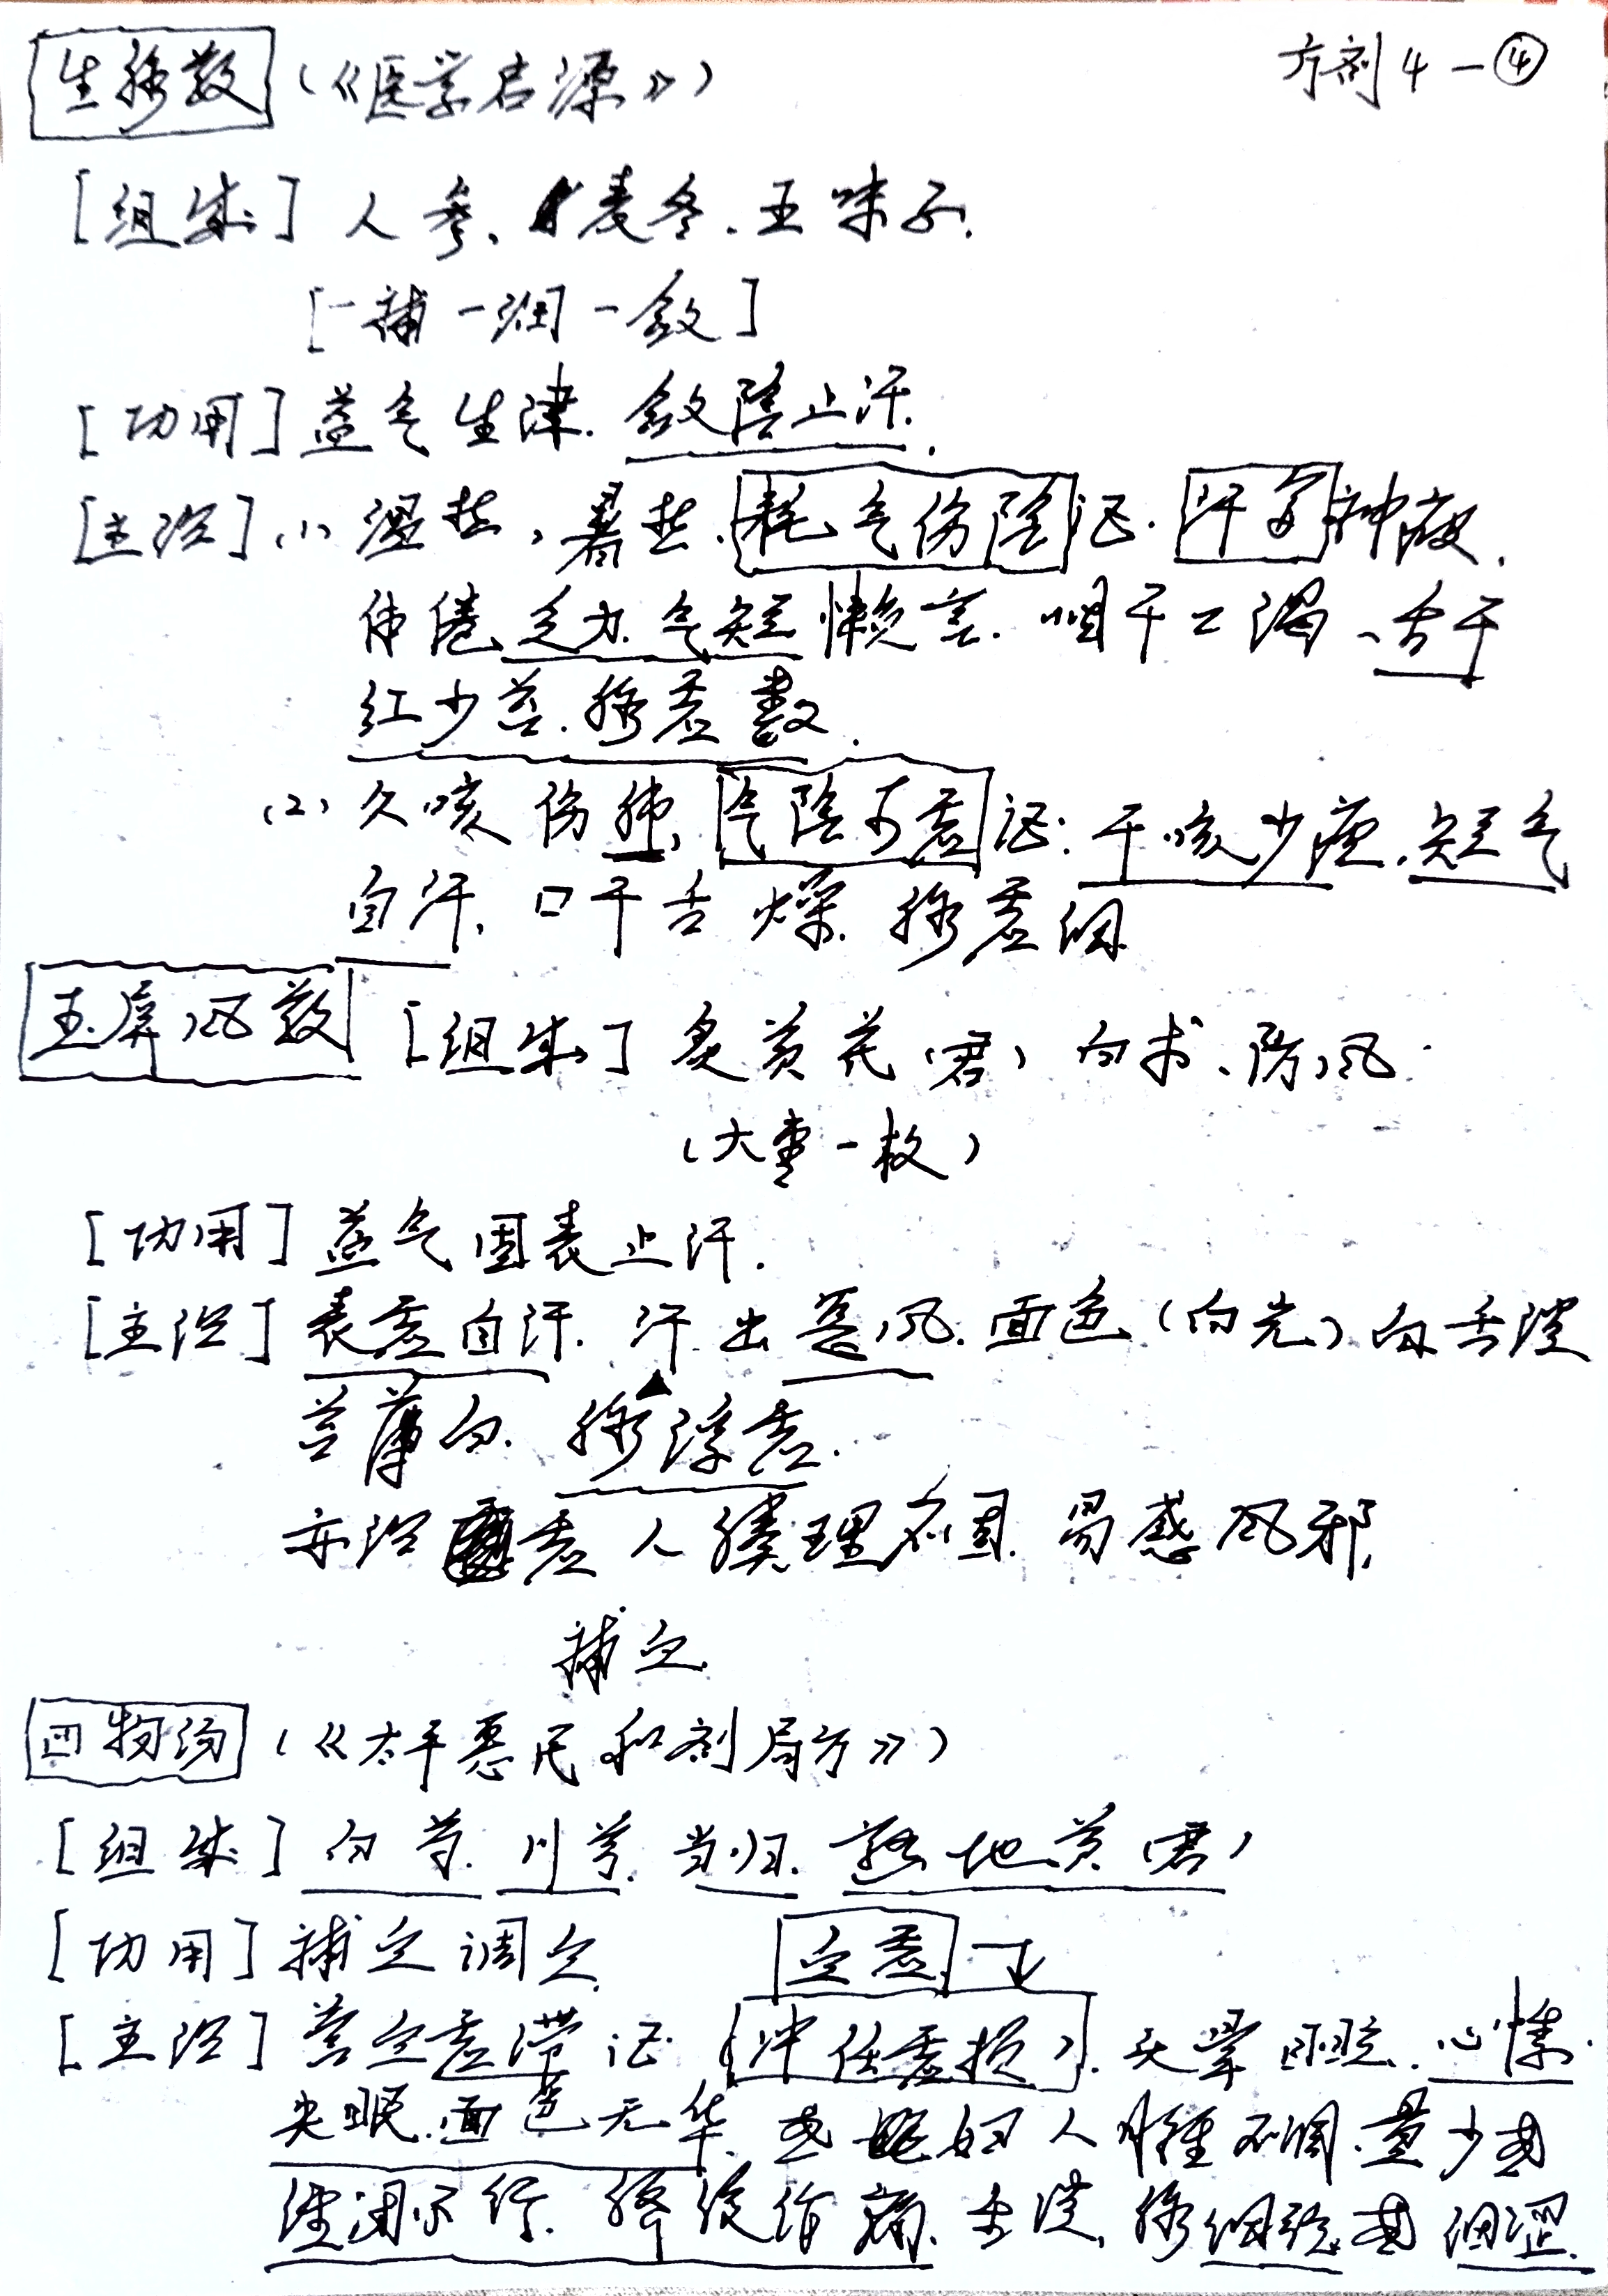 方剂4-④
生脉散（《医学启源》）
[组成] 人参、麦冬、五味子.
[一补一润一敛]
[功用] 益气生津. 敛阴止汗.
[主治] (1) 温热, 暑热. 耗气伤阴证. 汗多神疲.
体倦乏力. 气短懒言. 咽干口渴、舌干
红少苔. 脉虚数.
(2) 久咳伤肺, 气阴两虚证: 干咳少痰. 短气
自汗. 口干舌燥. 脉虚细
玉屏风散 [组成] 炙黄芪（君）白术、防风.
（大枣一枚）
[功用] 益气固表止汗.
[主治] 表虚自汗. 汗出恶风. 面色（白光）白舌淡
苔薄白. 脉浮虚.
亦治虚人腠理不固. 易感风邪.
补血
四物汤（《太平惠民和剂局方》）
[组成] 白芍. 川芎. 当归. 熟地黄（君）
[功用] 补血调血. 血虚
[主治] 营血虚滞证（冲任虚损）. 头晕目眩. 心悸.
失眠. 面色无华. 或妇人月经不调. 量少或
经闭不行. 脐腹作痛. 舌淡. 脉细弦或细涩.